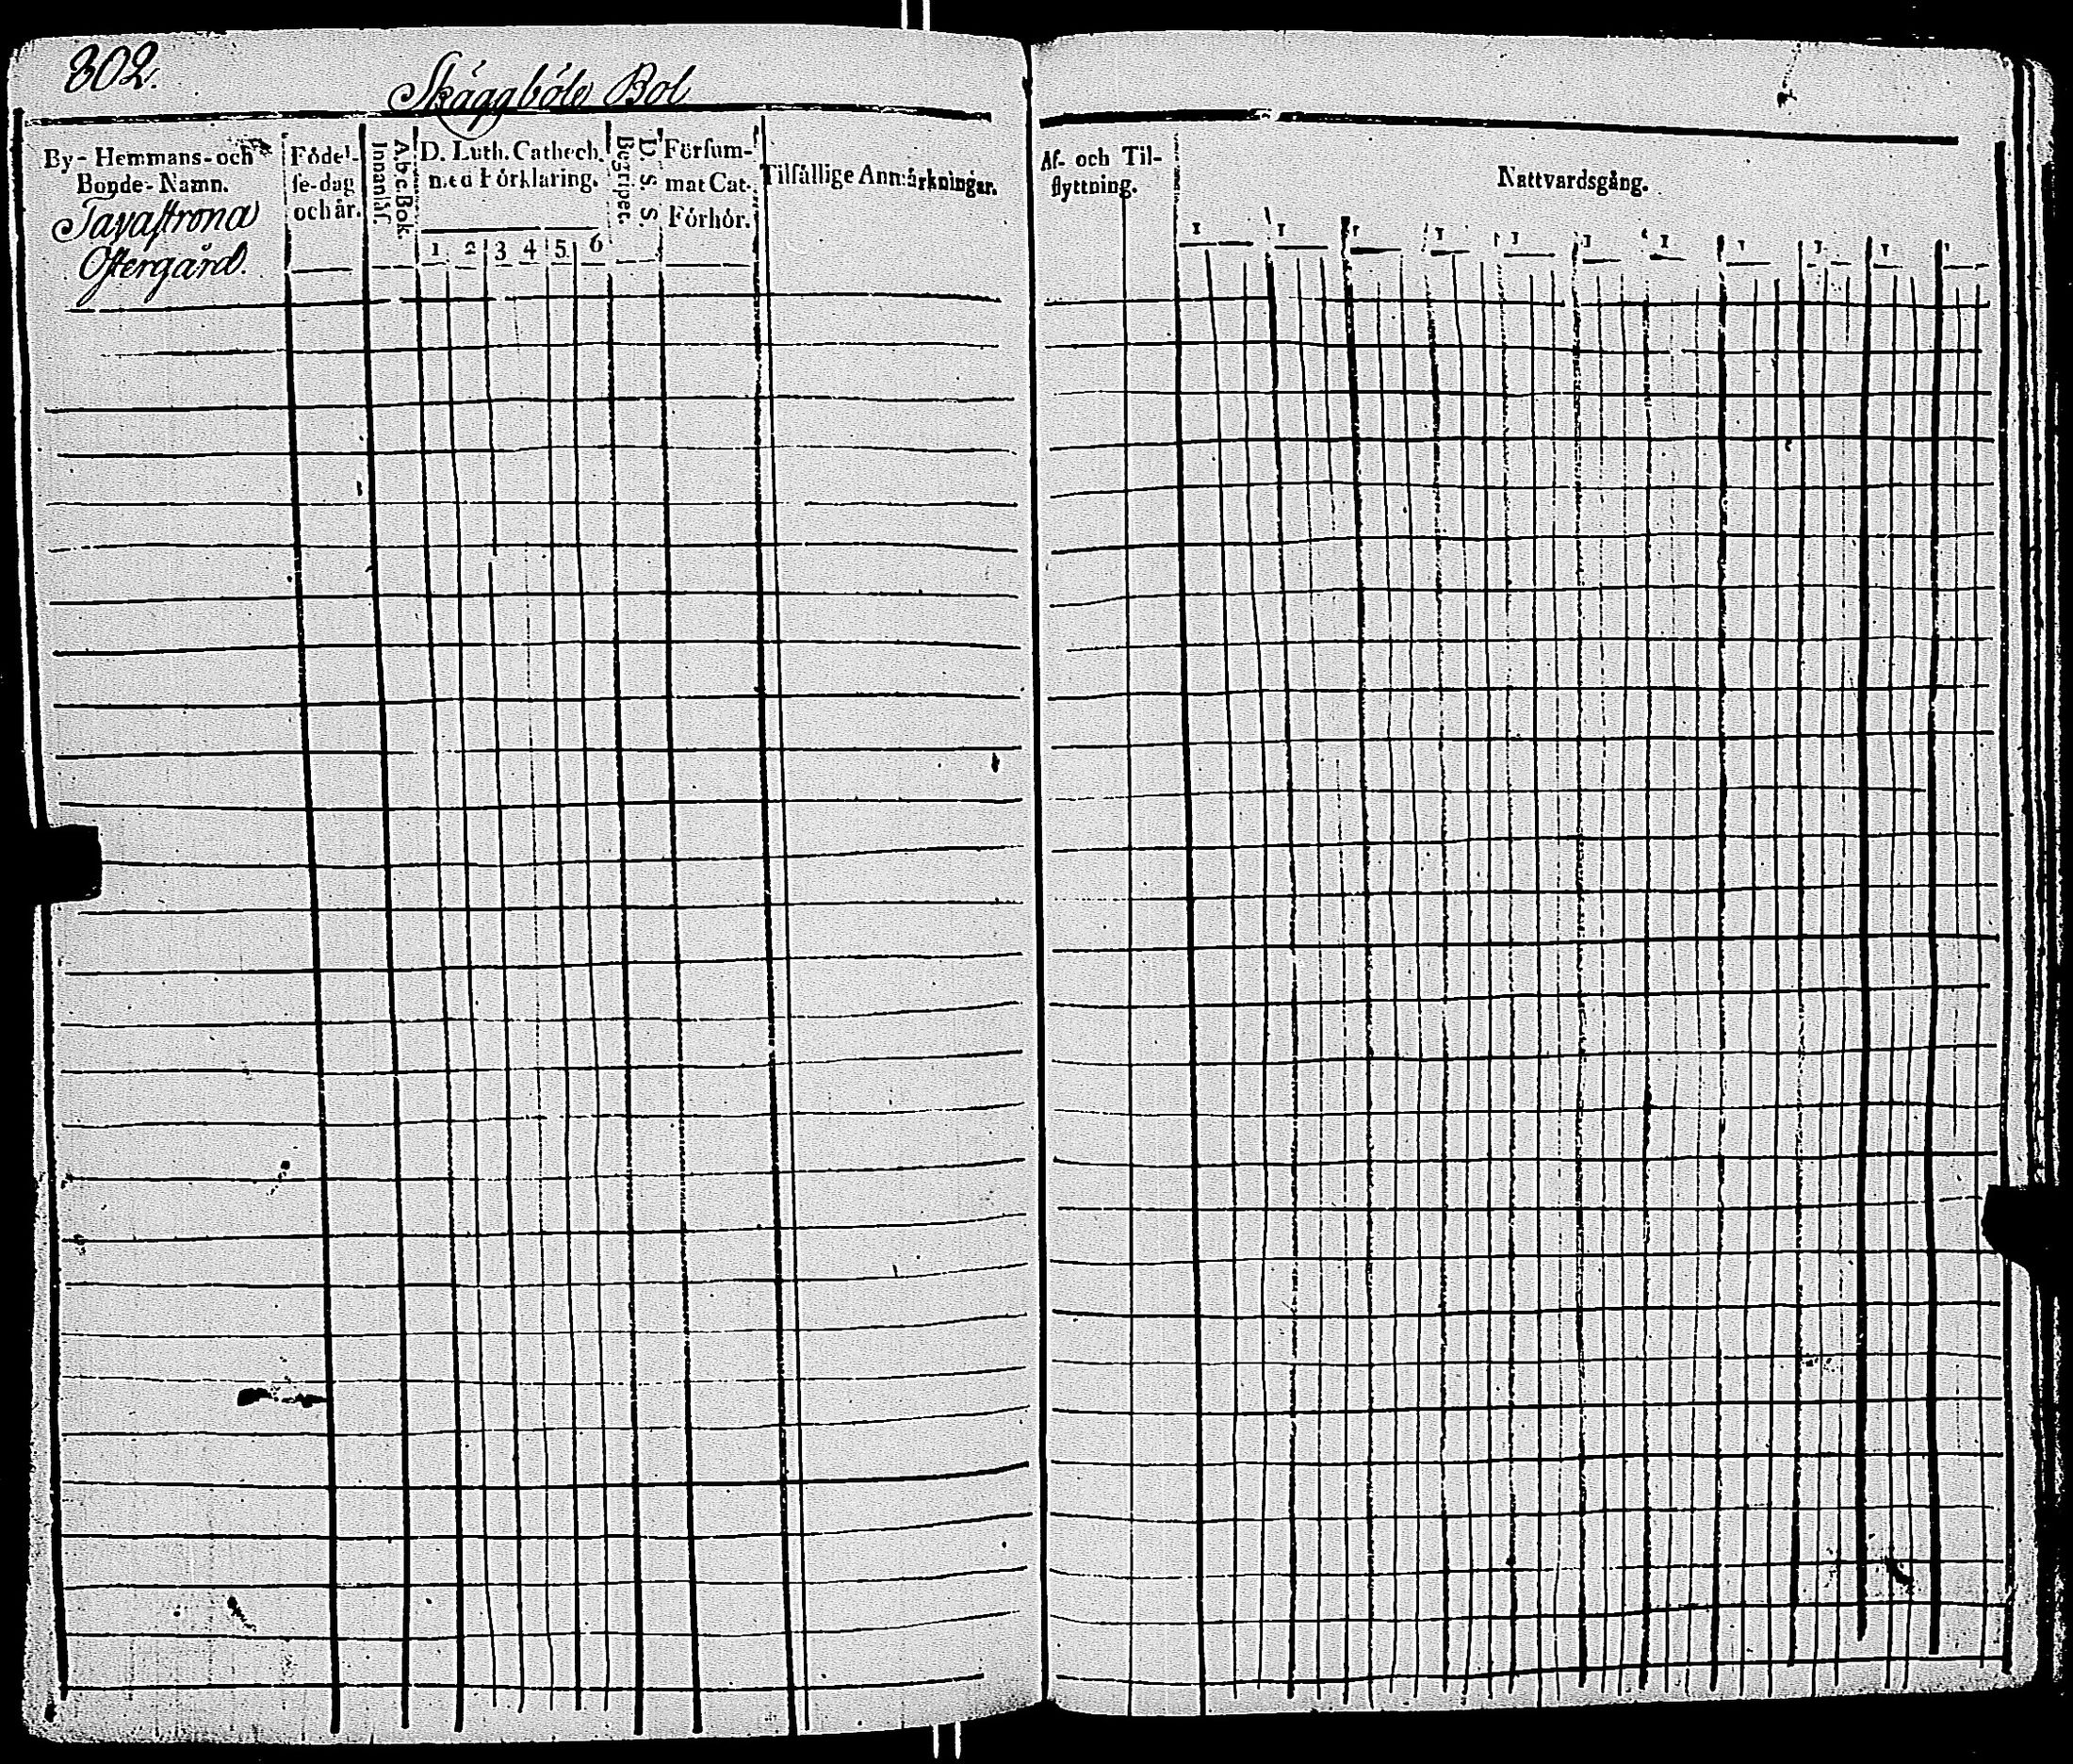 302.
Skäggböle Bol
By- Hemmans- och
Bonde-Namn.
Tavastrona
Östergård.
Födel-
se-dag
och år.
A b c Bok.
Innanläs.
D. Luth. Cathech.
med Förklaring.
1 2 3 4 5 6
D. S. S.
Begripet.
Försum-
mat Cat-
Förhör.
Tilfällige Anmärkningar.
Af- och Til-
flyttning.
Nattvardsgång.
1 1 1 1 1 1 1 1 1 1 1